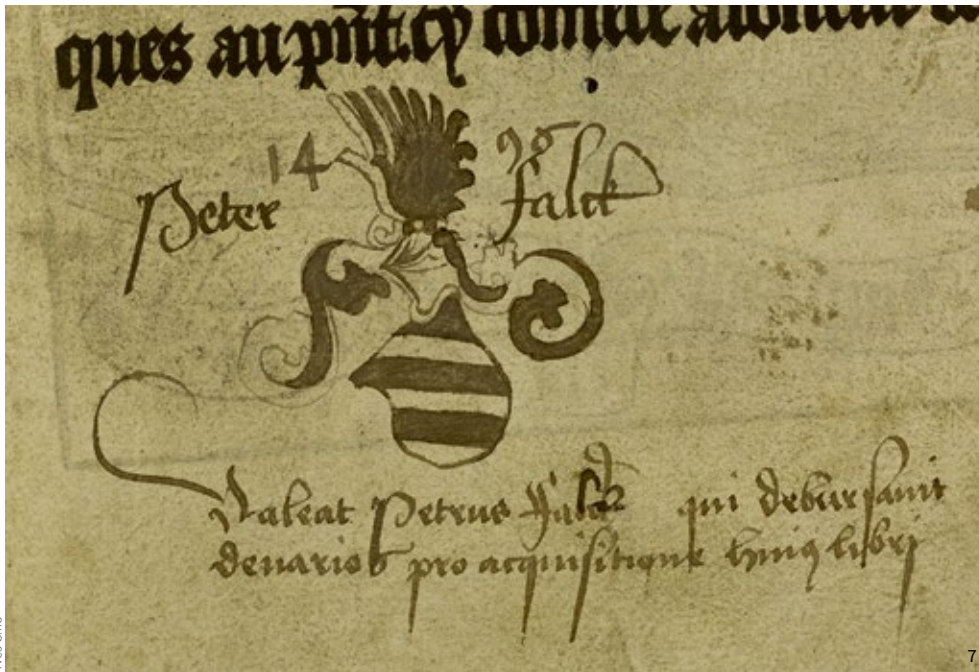 ques au pñt. cy
14 98
Peter Falck
Valeat Petrus Falck qui debursauit
denarios pro acquisitione huiꝯ libri
7